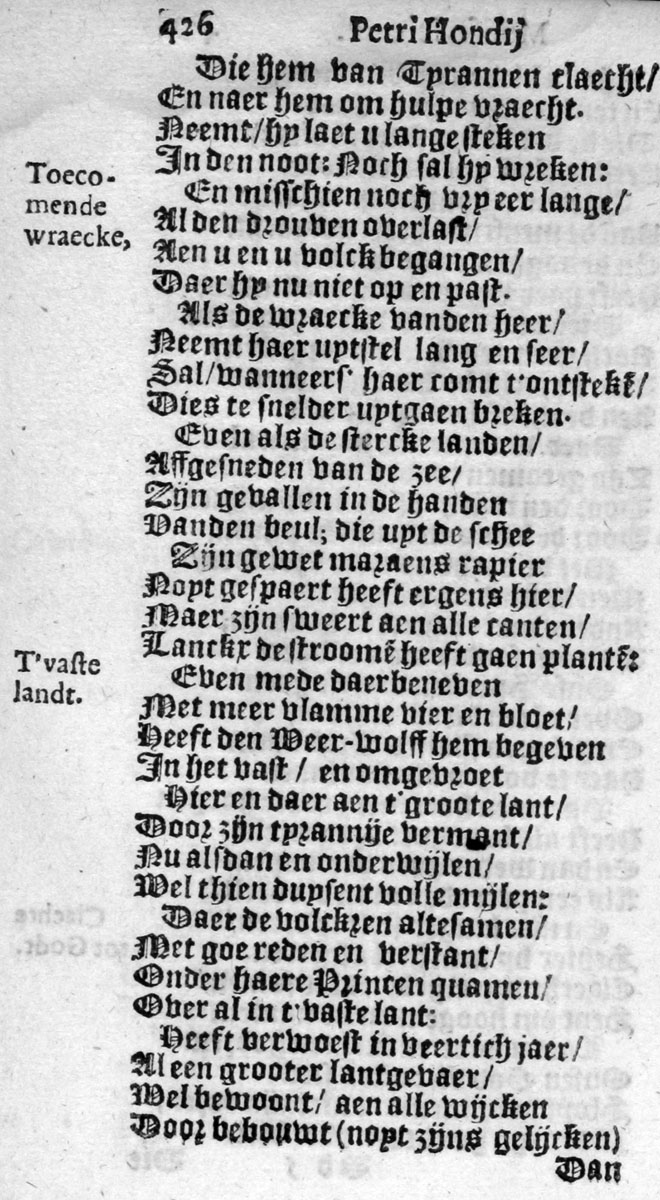 426 Petri Hondij
Die hem van Tyrannen claecht/
En naer hem om hulpe vraecht.
Neemt/hy laet u lange steken
Toeco-
In den noot: Noch sal hy wreken:
mende
En misschien noch vry eer lange/
wraecke,
Al den drouven overlast/
Aen u en u volck begangen/
Daer hy nu niet op en past.
Als de wraecke vanden heer/
Neemt haer uytstel lang en seer/
Sal/wanneers' haer comt t'ontstekē/
Dies te snelder uytgaen breken.
Even als de stercke landen/
Affgesneden van de zee/
Zijn gevallen in de handen
Vanden beul; die uyt de schee
Zijn gewet maraens rapier
Noyt gespaert heeft ergens hier/
Maer zijn sweert aen alle canten/
T'vaste
Lanckx de stroomē heeft gaen plantē:
landt.
Even mede daerbeneven
Met meer vlamme vier en bloet/
Heeft den Weer-wolff hem begeven
In het vast/ en omgevroet
Hier en daer aen t'groote lant/
Door zijn tyrannije vermant/
Nu alsdan en onderwijlen/
Wel thien duysent volle mijlen:
Daer de volckren altesamen/
Met goe reden en verstant/
Onder haere Princen quamen/
Over al in t'vaste lant:
Heeft verwoest in veertich jaer/
Al een grooter lantgevaer/
Wel bewoont/ aen alle wijcken
Door bebouwt (noyt zijns gelijcken)
Dan